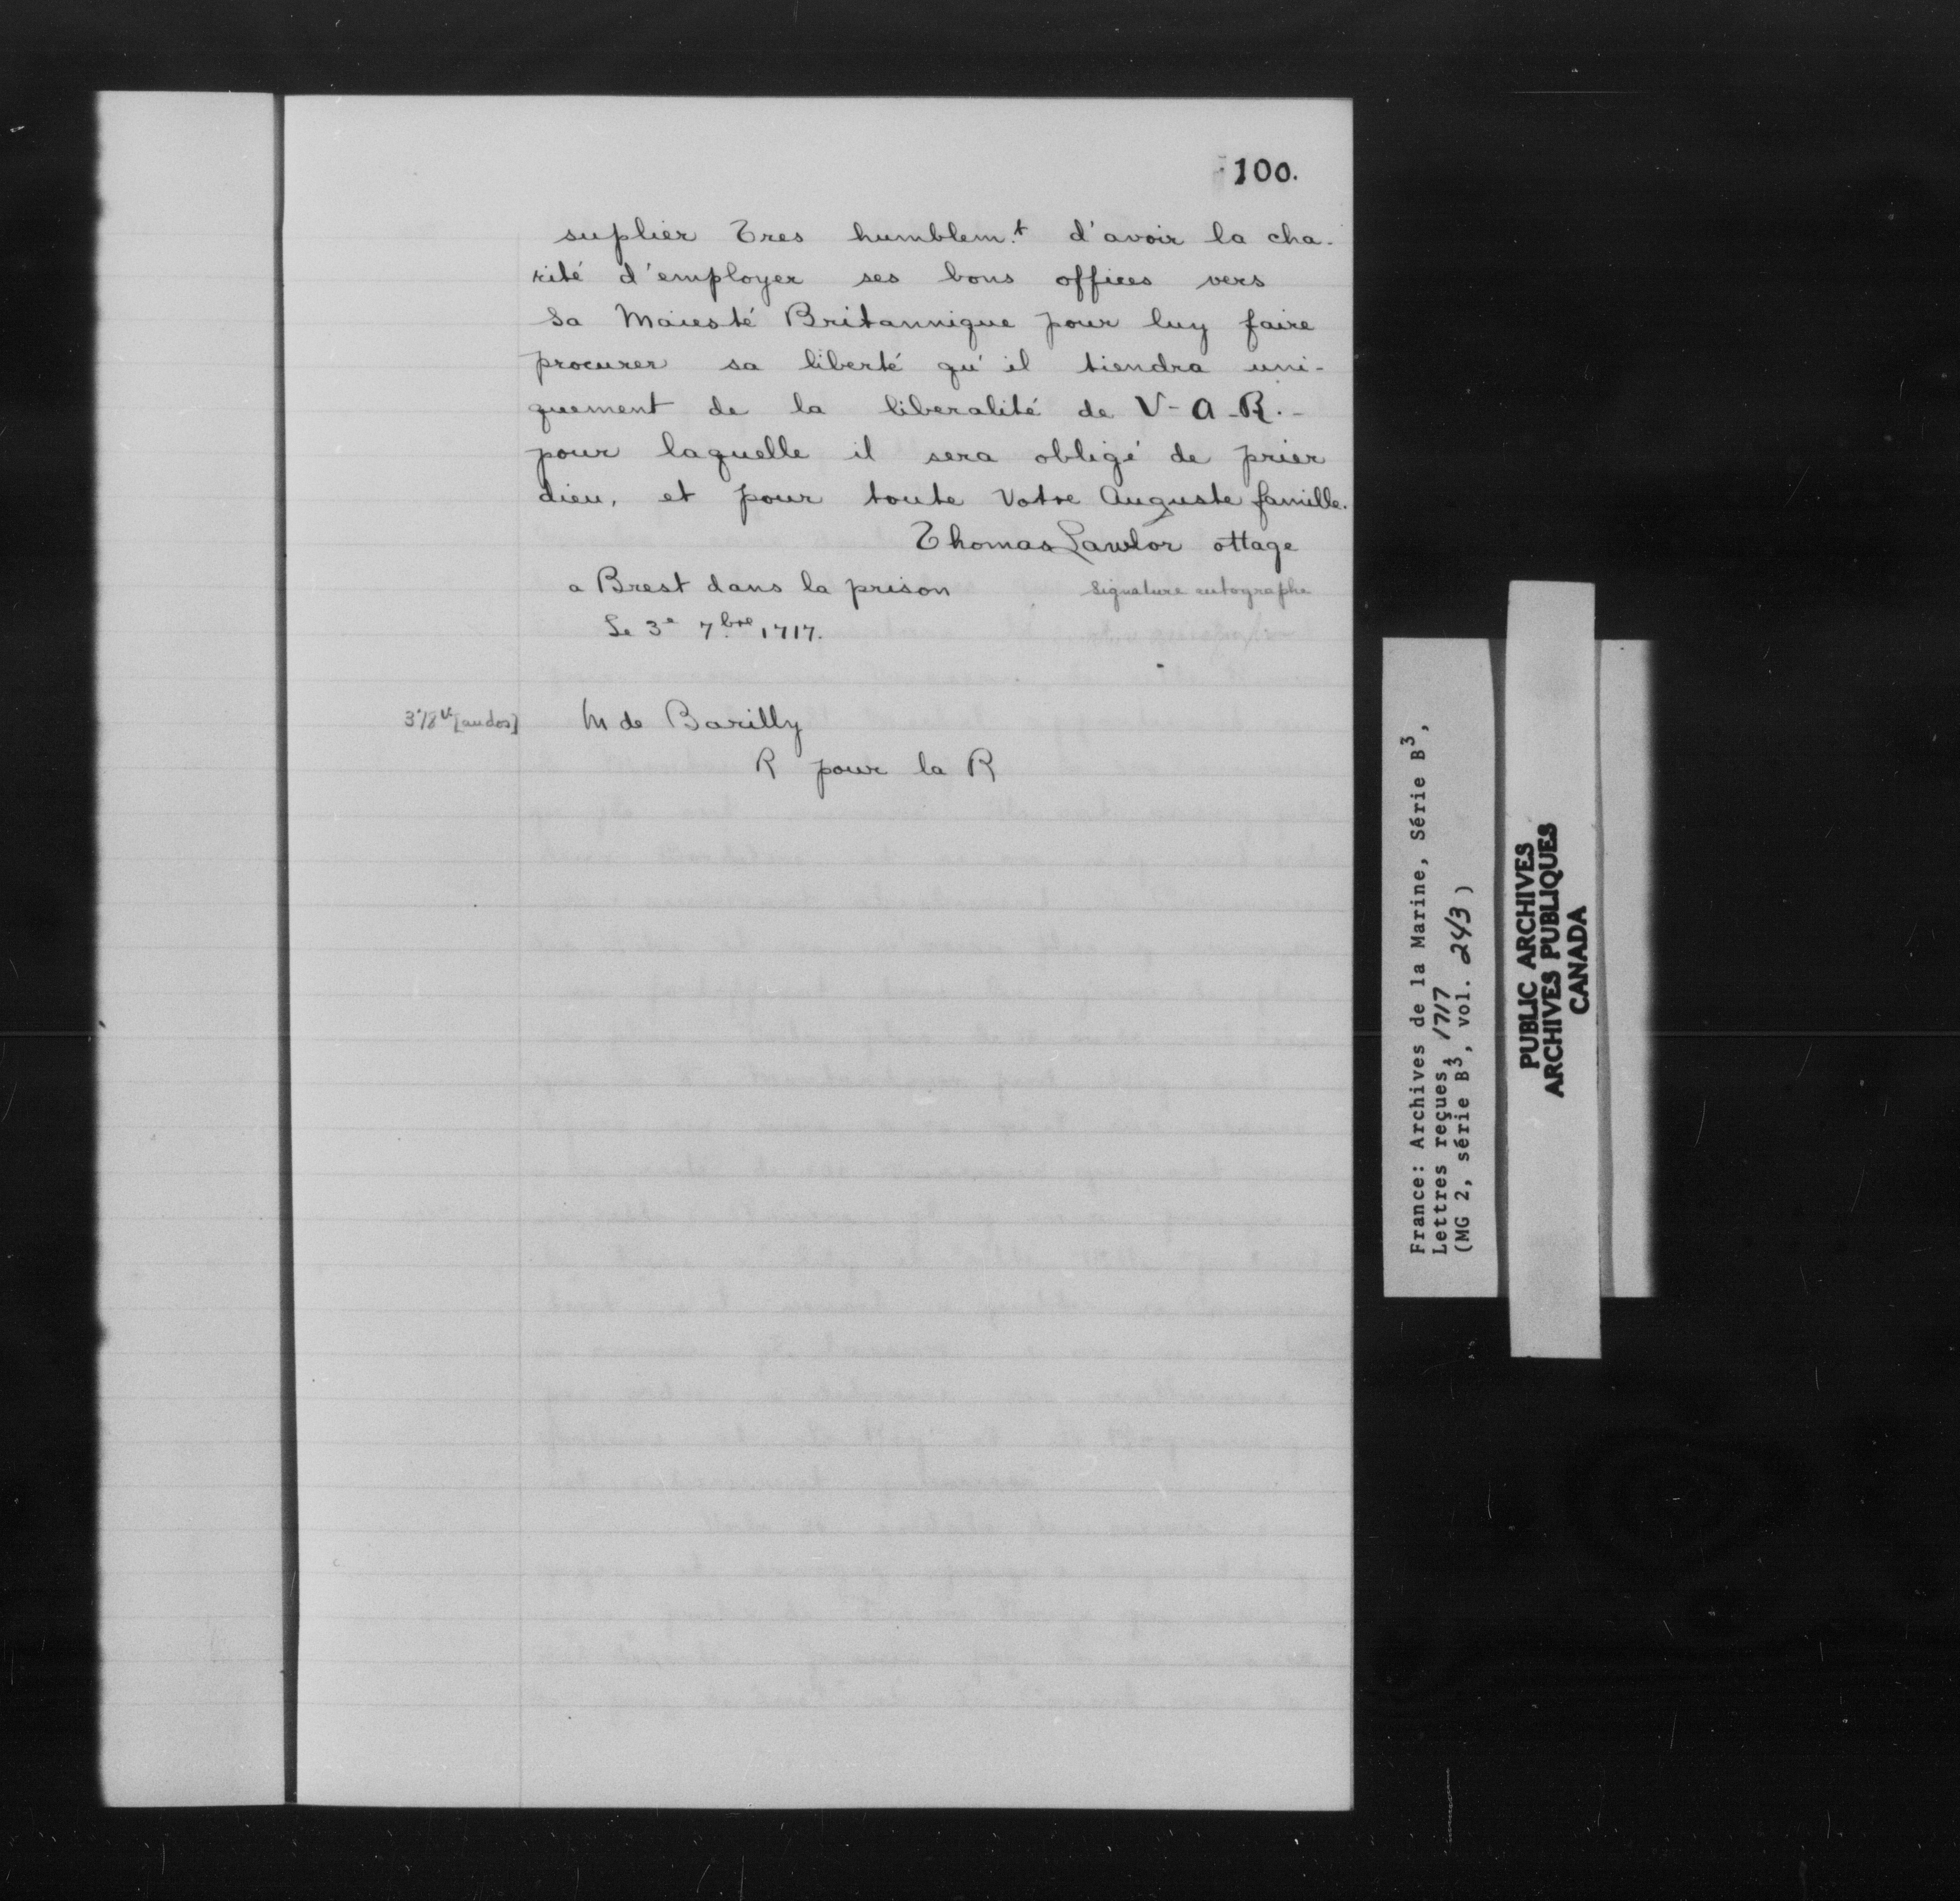 100.
suplier Tres humblem.t d'avoir la cha-
rité d'employer ses bons offices vers
Sa Maiesté Britannique pour luy faire
procurer sa liberté qu'il tiendra uni-
quement de la liberalité de V-A-R.-
pour laquelle il sera obligé de prier
dieu, et pour toute Votre Auguste famille.
Thomas Lawlor ottage
a Brest dans la prison
Signature autographe
Le 3e 7.bre 1717.
[au dos]
M de Barilly
R pour la R
France: Archives de la Marine, Série B3,
Lettres reçues, 1717
(MG 2, série B3, vol. 243)
PUBLIC ARCHIVES
ARCHIVES PUBLIQUES
CANADA